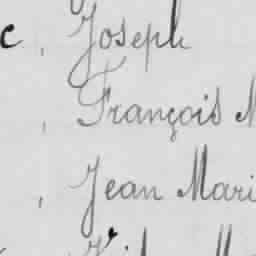 c, Joseph
, François M
, Jean Mari